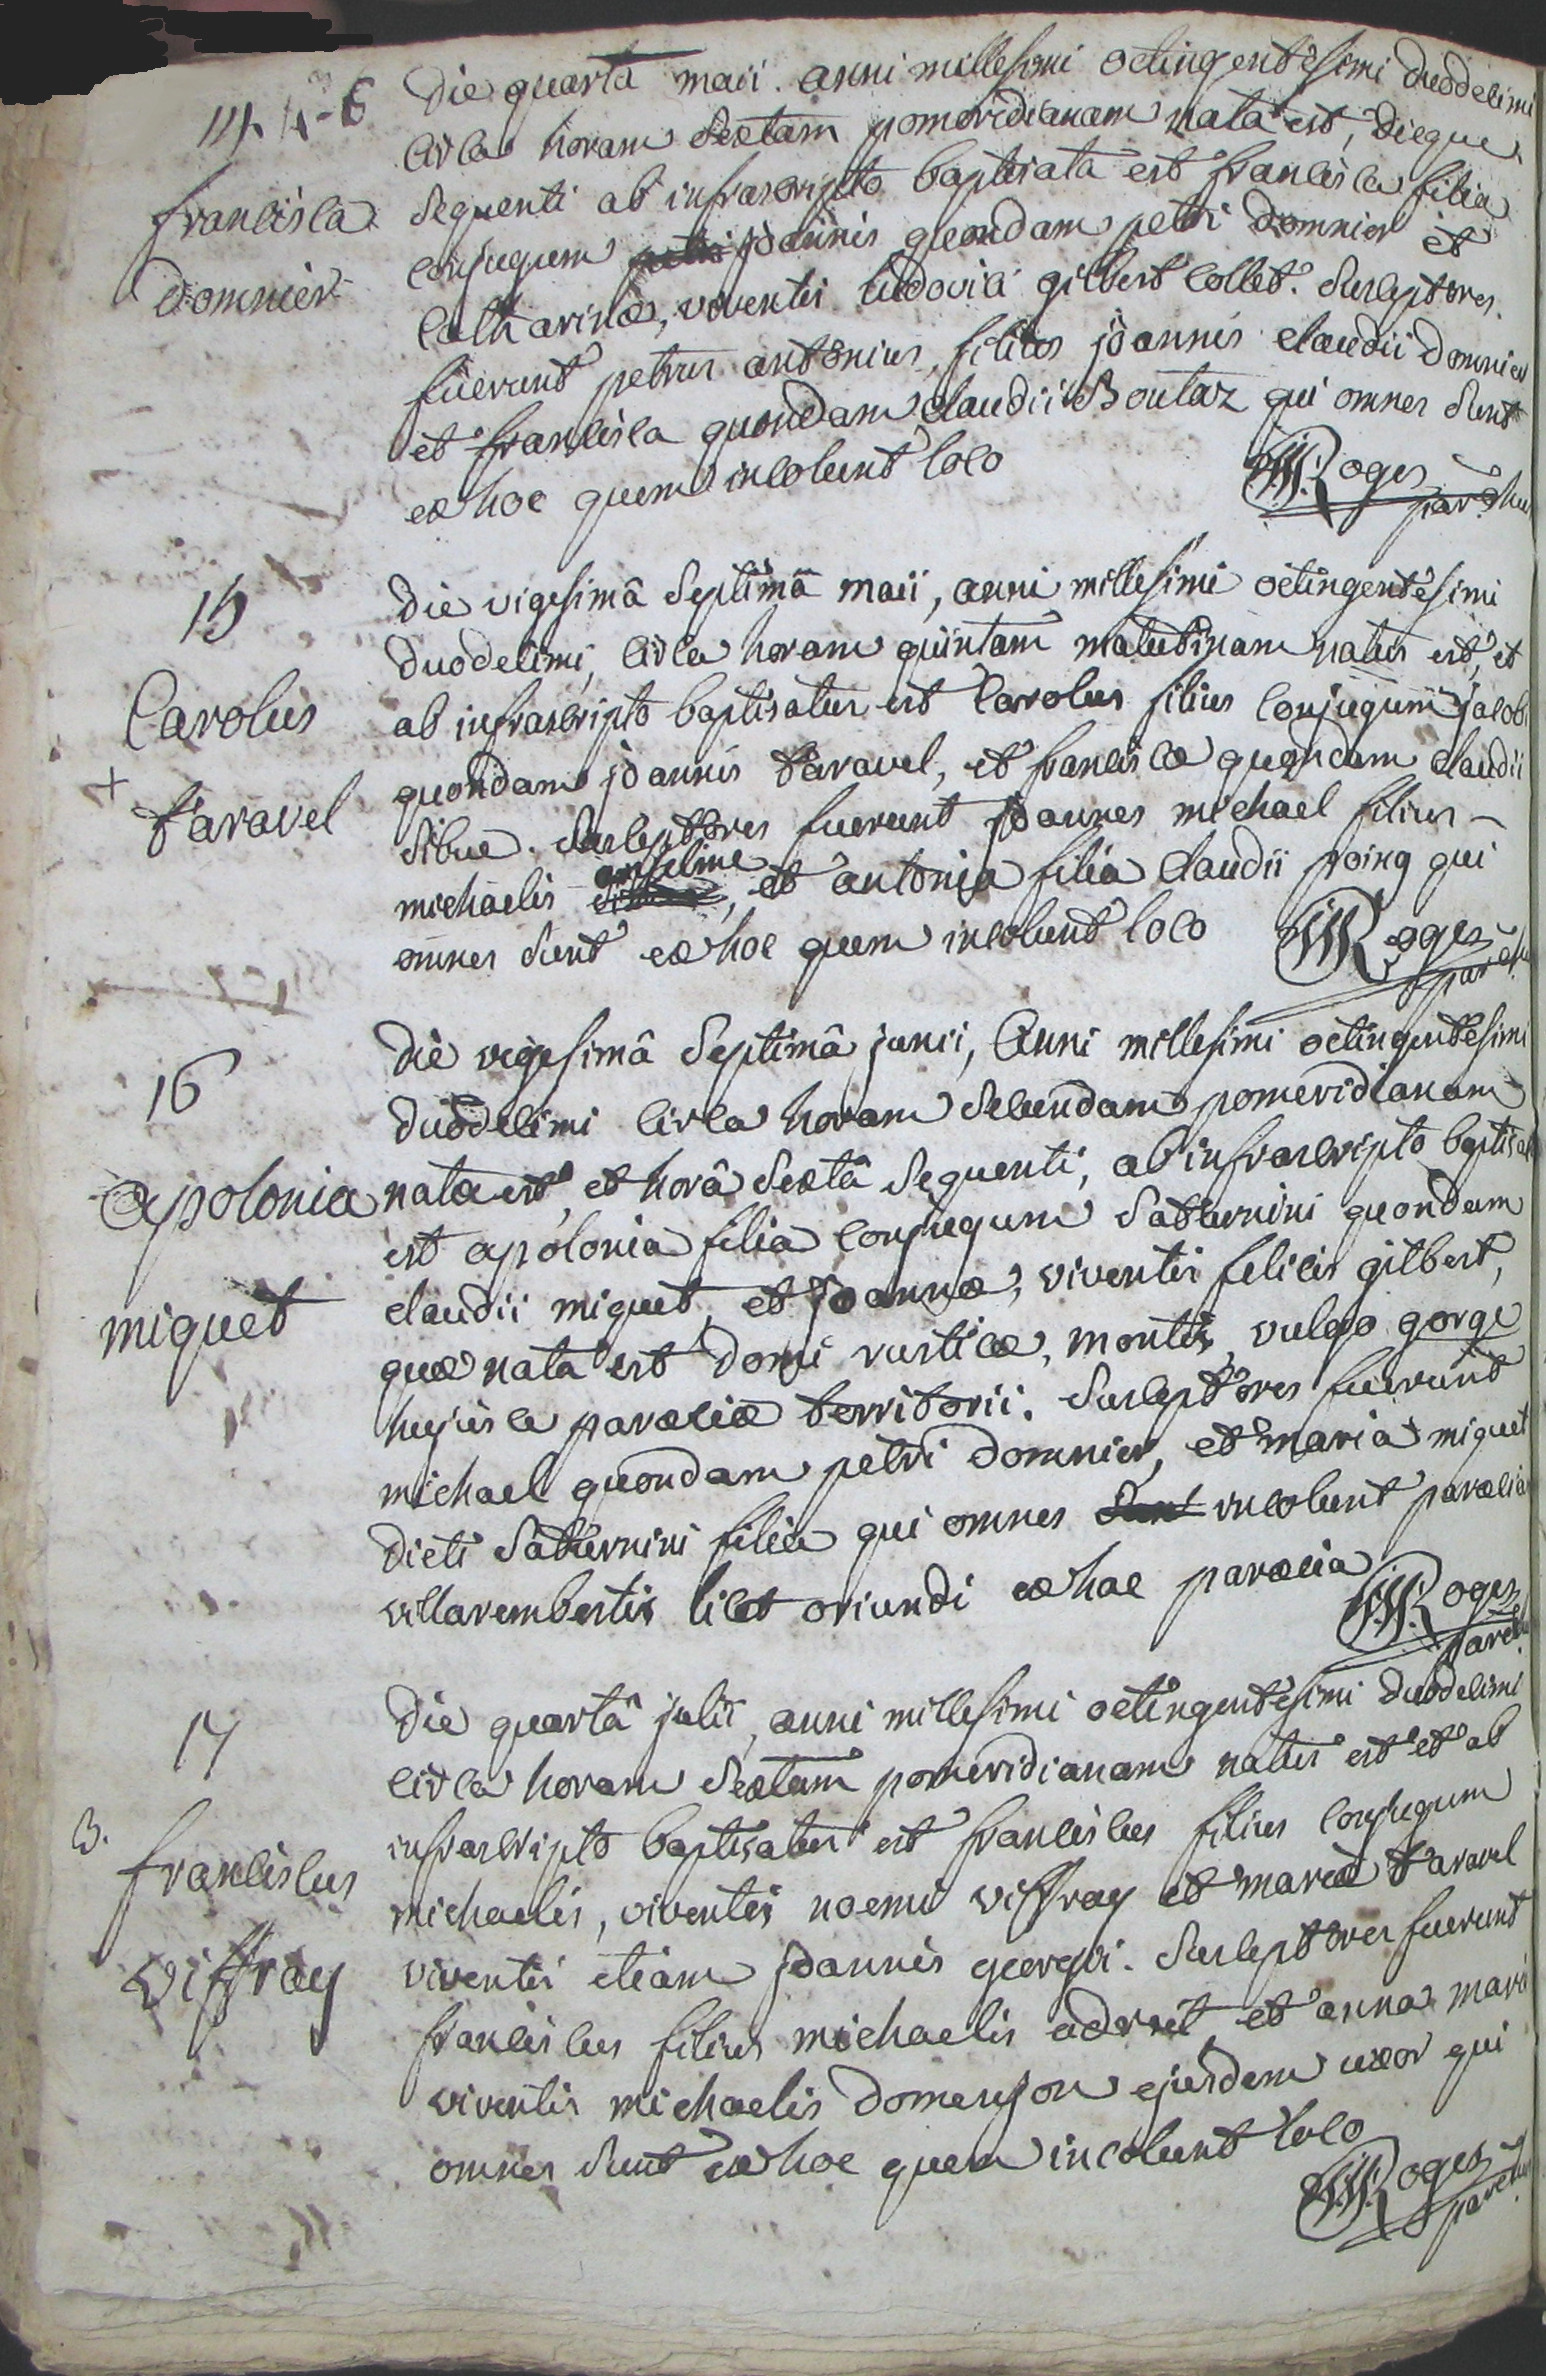 14
francisca
domnier
Die quarta maii. anni millesimi octingentesimi duodecimi
circa horam sextam pomeridianam nata est, dieque
sequenti ab infrascripto baptisata est francisca filia
conjugum joannis quondam petri domnier et
Catharinæ, viventis ludovici gilbert collet. Susceptores
fuerunt petrus antonius, filius joannis claudii domnier
et francisca quondam claudii Boutaz qui omnes sunt
ex hoc quem incolunt loco
Roges
parochus
15
Carolus
+
taravel
Die vigesimâ septimâ maii, anni millesimi octingentesimi
duodecimi, circa horam quintam matutinam natus est, et
ab infrascripto baptisatus est Carolus filius conjugum jacobi
quondam joannis taravel, et franciscæ quondam claudii
sibue. Susceptores fuerunt joannes michael filius
michaelis anselme, et antonia filia claudii poing qui
omnes sunt ex hoc quem incolunt loco
Roges
parochus
16
apolonia
miquet
Die vigesimâ septimâ junii, Anni millesimi octingentesimi
duodecimi circa horam secundam pomeridianam
nata est, et horâ sextâ sequenti, ab infrascripto baptisata
est apolonia filia conjugum Saturnini quondam
claudii miquet, et joannæ, viventis felicis gilbert,
quæ nata est domi rusticæ, montis, vulgo gorge
hujusce paræciæ territorii. Susceptores fuerunt
michael quondam petri domnier, et maria miquet
dicti Saturnini filia qui omnes sunt incolunt paræciam
villarembertis licet oriundi ex hac paræcia
Roges
parochus
17
3.
franciscus
viffray
Die quartâ julii, anni millesimi octingentesimi duodecimi
circa horam sextam pomeridianam natus est et ab
infrascripto baptisatus est franciscus filius conjugum
michaelis, viventis noemi viffray et mariæ taravel
viventis etiam joannis georgii. Susceptores fuerunt
franciscus filius michaelis et anna maria
viventis michaelis domenjon ejusdem uxor qui
omnes sunt ex hoc quem incolunt loco
Roges
parochus